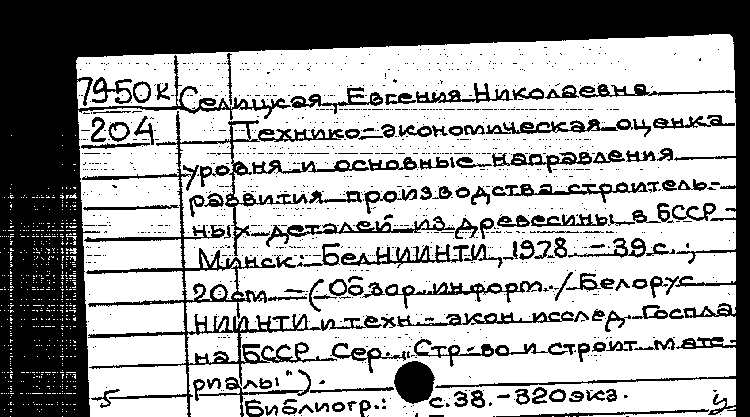 79-50к Селицкая, Евгения Николаевна.
204 Технико-экономическая оценка
уровня и основные направления
развития производства строитель-
ных деталей из древесины в БССР -
Минск: БелНИИНТИ, 1978. - 39 с.;
20 см. - (Обзор. информ. / Белорус
НИИ НТИ и техн.-экон. исслед. Госпла
на БССР. Сер. „Стр-во и строит. мате-
риалы").
5 Библиогр.: с. 38. - 320 экз.